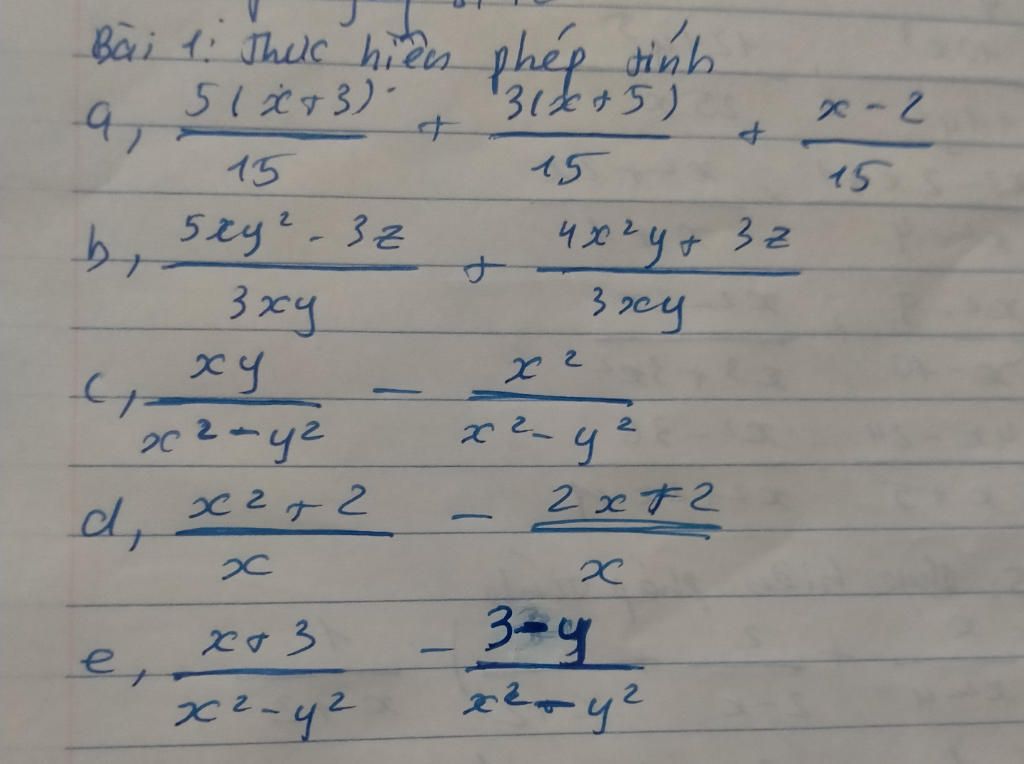 Bài 1: Thực hiện phép tính
a, 5(x+3)/15 + 3(x+5)/15 + x-2/15
b, 5xy² - 3z/3xy + 4x²y + 3z/3xy
c, xy/x²-y² - x²/x²-y²
d, x²+2/x - 2x+2/x
e, x+3/x²-y² - 3-y/x²-y²